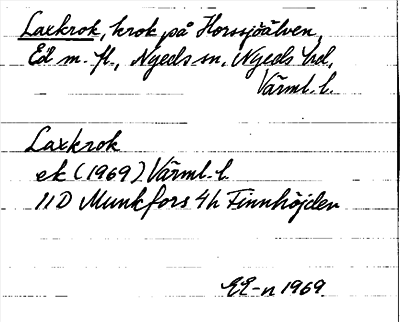 Laxkrok, krok på Horssjöälven,
Ed m. fl., Nyeds sn, Nyeds hd,
Värml. l.
Laxkrok
ek (1969) Värml. l.
11D Munkfors 4h Finnhöjden
EE-n 1969.